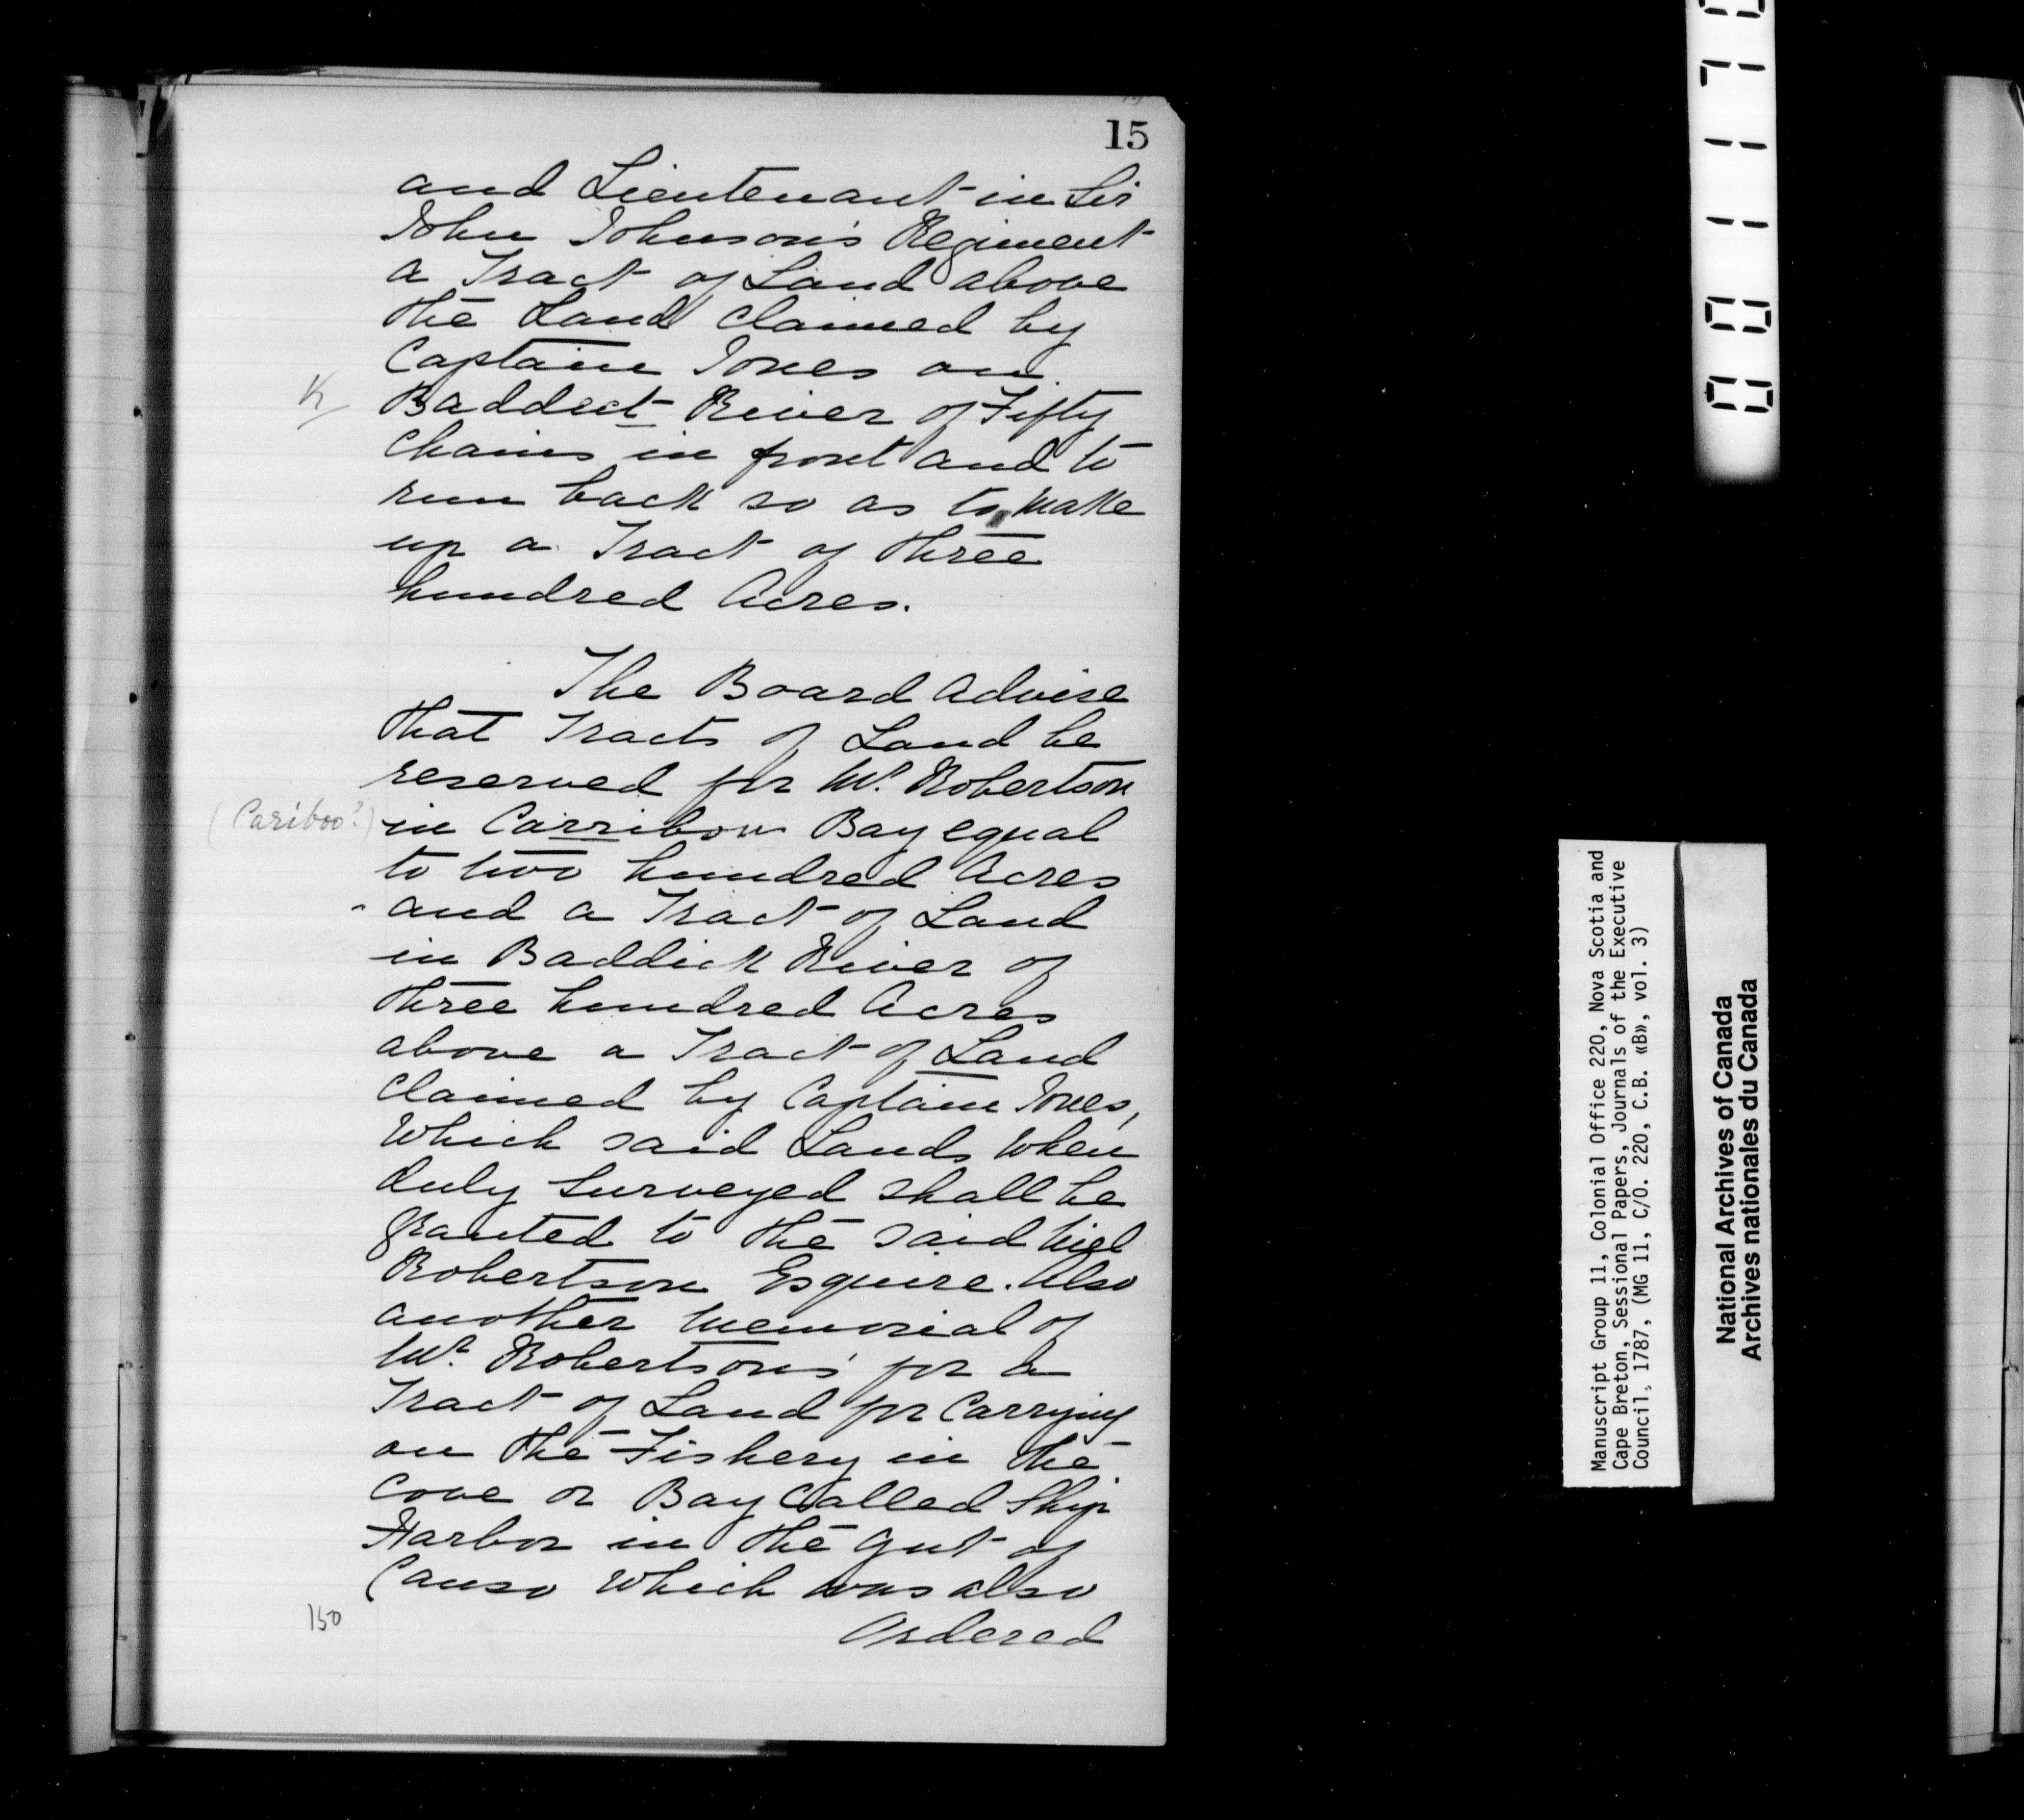 15
and Lieutenant in Sir
John Johnson's Regiment
a Tract of Land above
the Land claimed by
Captain Jones on
K
Baddect River of Fifty
Chains in front and to
run back so as to make
up a Tract of three
hundred Acres.
The Board Advise
that Tracts of Land be
reserved for Mr. Robertson
(Cariboo?)
in Carribou Bay equal
to two hundred Acres
and a Tract of Land
in Baddick River of
three hundred Acres
above a Tract of Land
claimed by Captain Jones,
which said Lands when
duly Surveyed shall be
granted to the said Niel
Robertson Esquire. Also
another Memorial of
Mr. Robertson's for a
Tract of Land for Carrying
on the Fishery in the
Cove or Bay Called Ship
Harbor in the Gut of
Canso which was also
150
Ordered
Manuscript Group 11, Colonial Office 220, Nova Scotia and
Cape Breton, Sessional Papers, Journals of the Executive
Council, 1787, (MG 11, C/O. 220, C.B. «B», vol. 3)
National Archives of Canada
Archives nationales du Canada